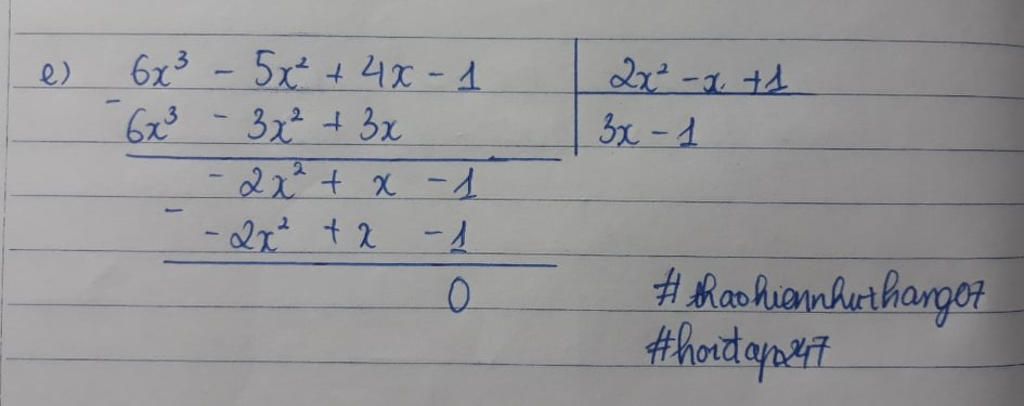 e) 6x³ - 5x² + 4x - 1 | 2x² - x + 1
- 6x³ - 3x² + 3x | 3x - 1
- 2x² + x - 1
- - 2x² + x - 1
0
#thaohiennhuthang07
#hoidap247